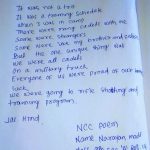 It was not a trip
It was a training schedule
When I was in camp
There were many cadets with me
Some were strangers
Some were like my brother and cadets
But the one unique thing was
We were all cadets
On a military truck
Everyone of us were proud of our
luck
We were going to rifle shooting and
training program.
Jai Hind
NCC poem
Name Narayan